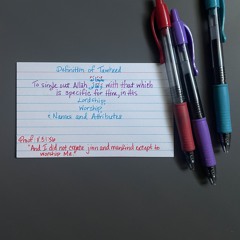 Definition of Tawheed
To single out Allah with that which
is specific for Him, in His
Lordship
Worship
+ Names and Attributes
"And I did not create jinn and mankind except to
worship Me."